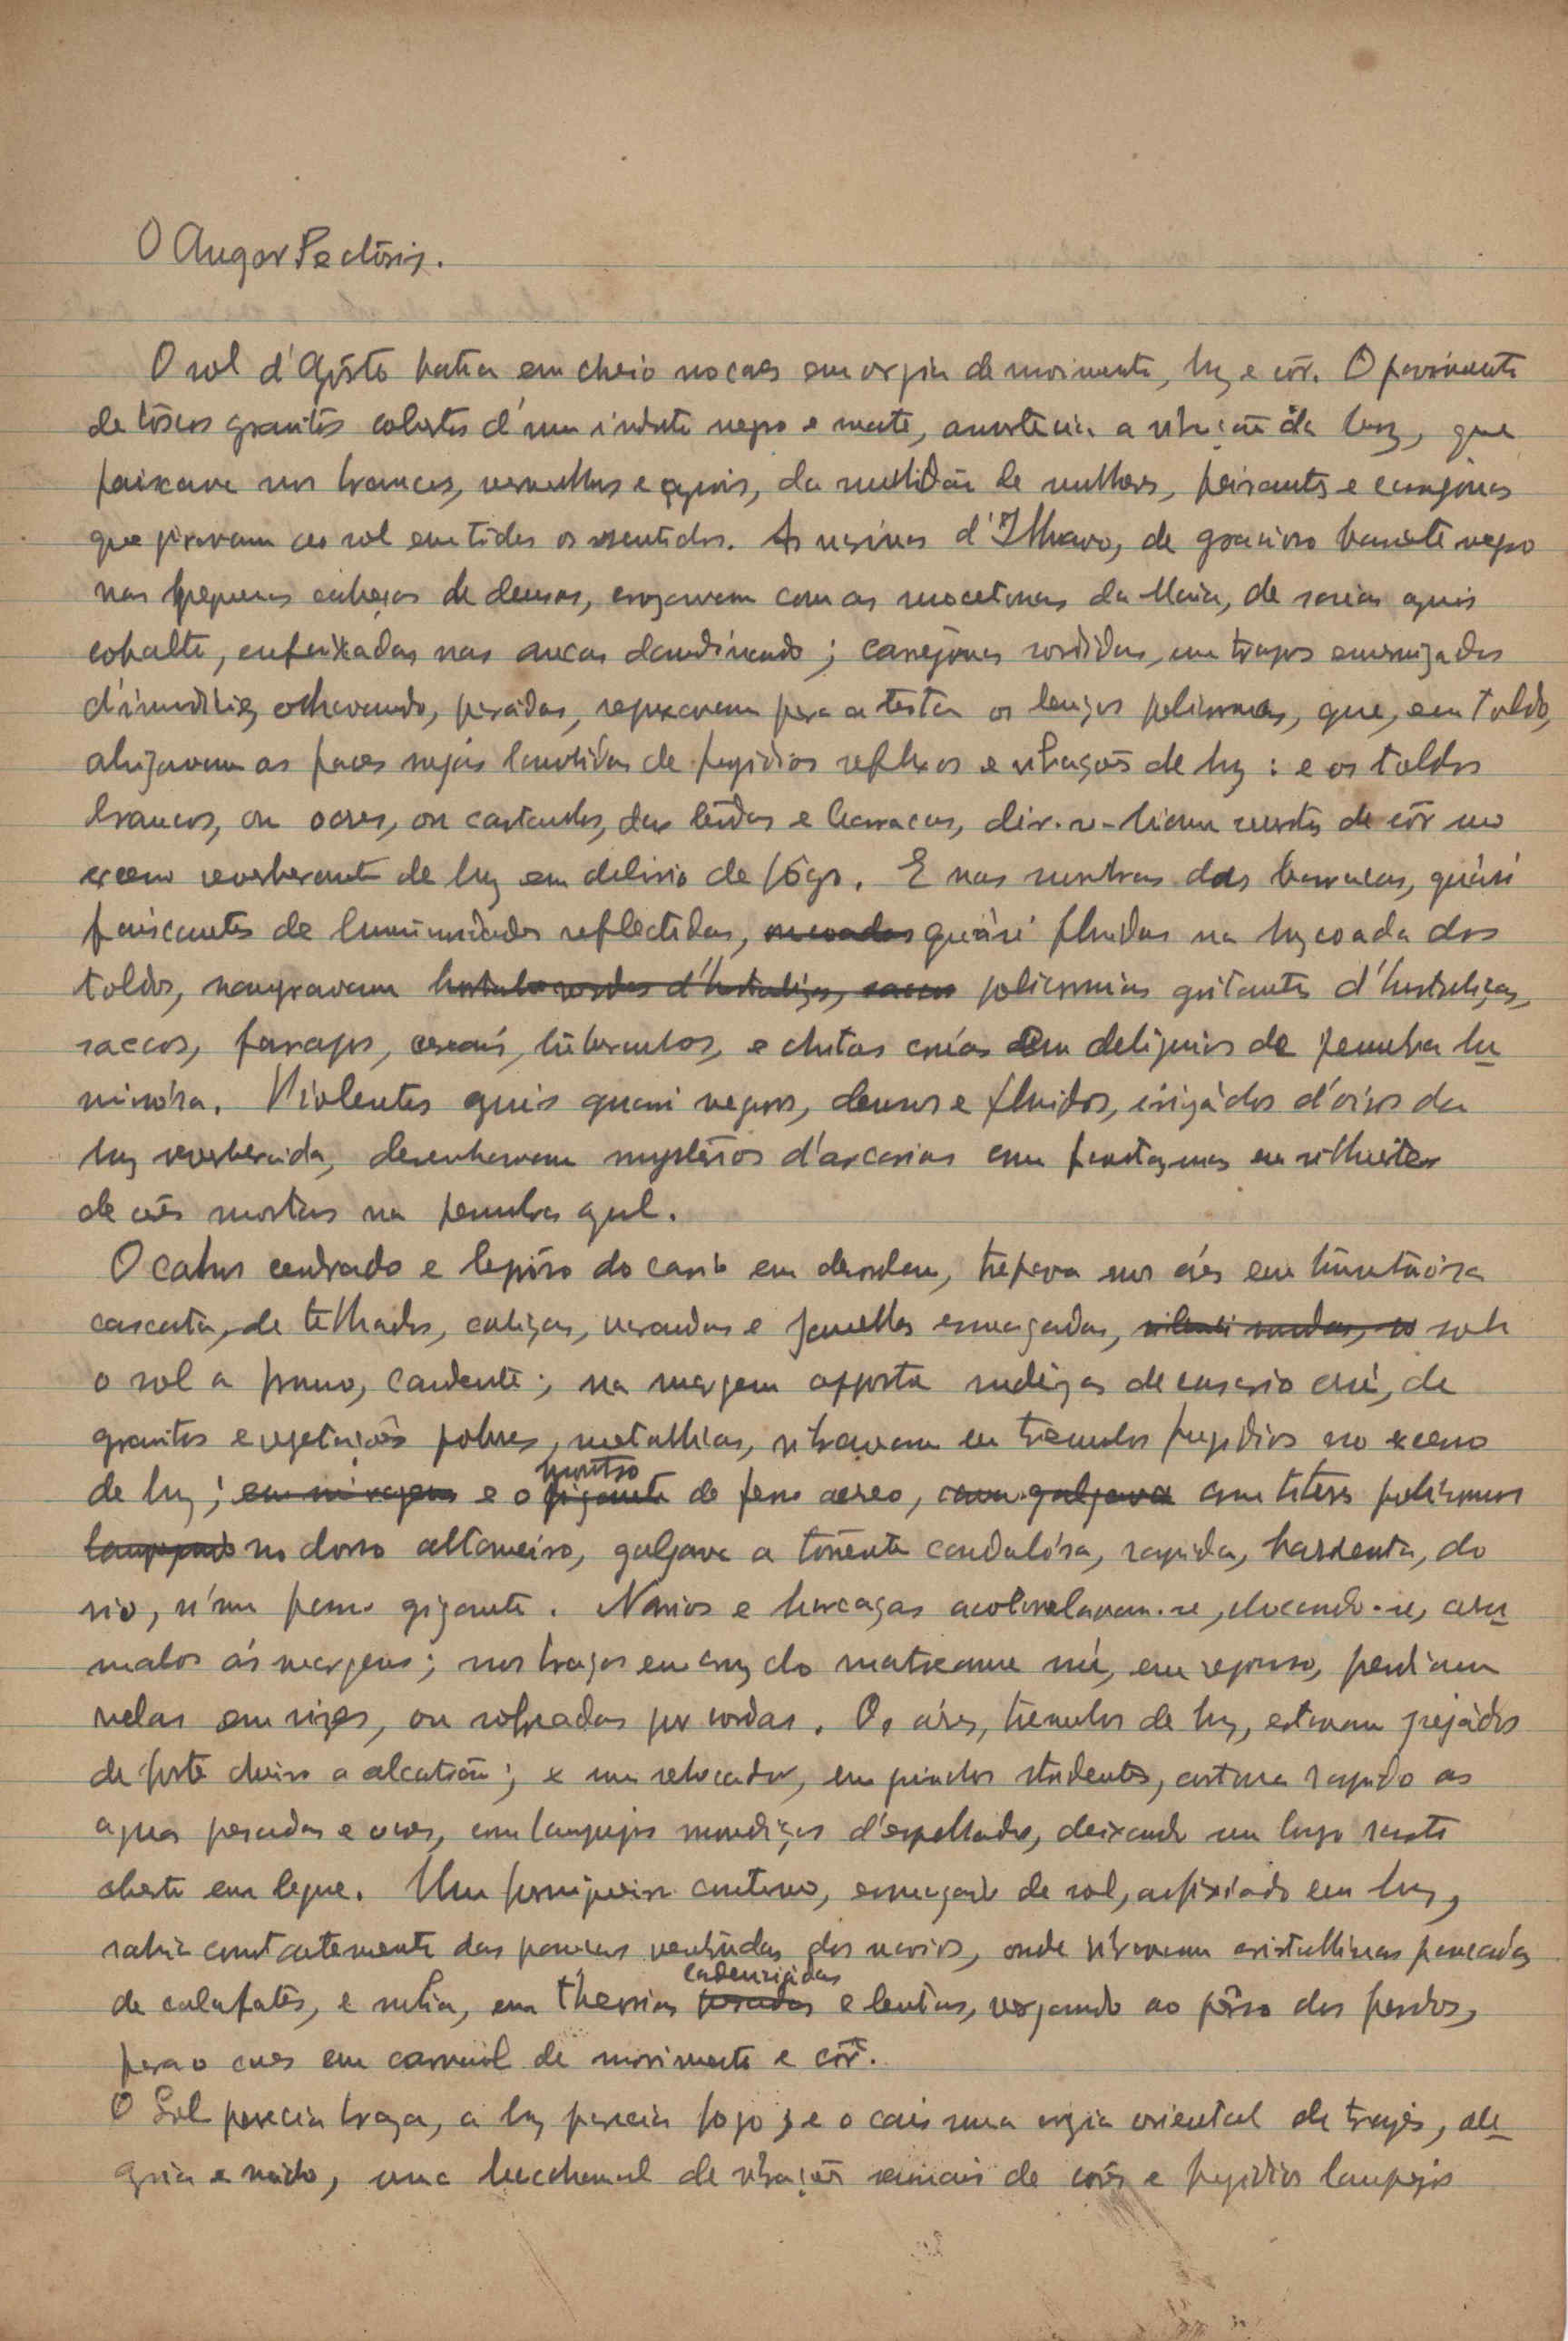 O Angor Pectóris.
O sol d'Agôsto batia em cheio no caes em orgia de movimento, luz e côr. O pavimento
de tôscos granitos cobertos d'um induto negro e mate, amortecia a vibração da luz, que
faixava nos brancos, vermelhos e azuis, da multidão de mulheres, peixantes e carrejonas
que giravam ao sol em todos os sentidos. As varinas d'Ilhavo, de gracioso barrete negro
nas pequenas cabeças de deusas, cruzavam com as mocetonas da Maia, de saias azuis
cobalto, enfeixadas nas ancas dandinando; carrejonas sordidas, em trapos envernizados
d'imundicie, echavando, paradas, repuxavam para a testa os lenços policromos, que, em toldo,
alujavam as faces sujas lambidas de fugidios reflexos e vibrações de luz: e os toldos
brancos, ou ocres, ou castanhos, das tendas e barracas, dir-se-hiam mortos de côr no
exceno reverberante de luz em delirio de fôgo. E nas sombras das barracas, quási
faiscantes de luminosidades reflectidas, quási fluidas na luz coada dos
toldos, sangravam policromias gritantes d'hortaliças,
saccos, farrapos, cereais, tuberculos, e chitas crúas em deliquios de penumbra lu-
minósa. Violentos azuis quasi negros, densos e fluidos, irizádos d'óiros da
luz reverberada, desenhavam mysterios d'arcarias com fantasmas em silhuetes
de côres mortas na penumbra azul.
O cahos cendrado e leprôso do casario em desordem, trepava nos áres em tumultuósa
cascata, de telhados, caliças, varandas e janellas esmagadas, sob
o sol a prumo, candente; na margem opposta nudêzas de casario crú, de
granitos e vegetações pobres, metallicas, vibravam em tremulos fugidios no exceno
de luz; e o monstro de ferro aereo, com titeres policromos
no dorso altaneiro, galgava a torrente caudalósa, rapida, barrenta, do
rio, n'um pano gigante. Navios e barcaças acotovelavam-se, chocando-se, arru-
mados ás margens; nos braços em cruz do matreame nú, em repouso, pendiam
velas em rizes, ou sopeadas por cordas. Os áres, tremulos de luz, estavam prejádos
de forte cheiro a alcatrão; e um rebocador, em guinchos stridentes, cortava rapido as
aguas pesadas e ocres, com lampejos movediços d'espelhado, deixando um largo rasto
aberto em leque. Um formigueiro contínuo, esmagado de sol, asfixiado em luz,
sahia constantemente das pansas ventrudas dos navios, onde vibravam cristallinas pancadas
de calafates, e subia, em theorias cadenciadas e lentas, vergando ao pêso dos fardos,
para o caes em carnaval de movimento e côr.
O Sol parecia braza, a luz parecia fogo; e o cais uma orgia oriental de trajes, ale-
gria e ruido, uma bacchanal de vibrações sensuais de côres e fugidios lampejos